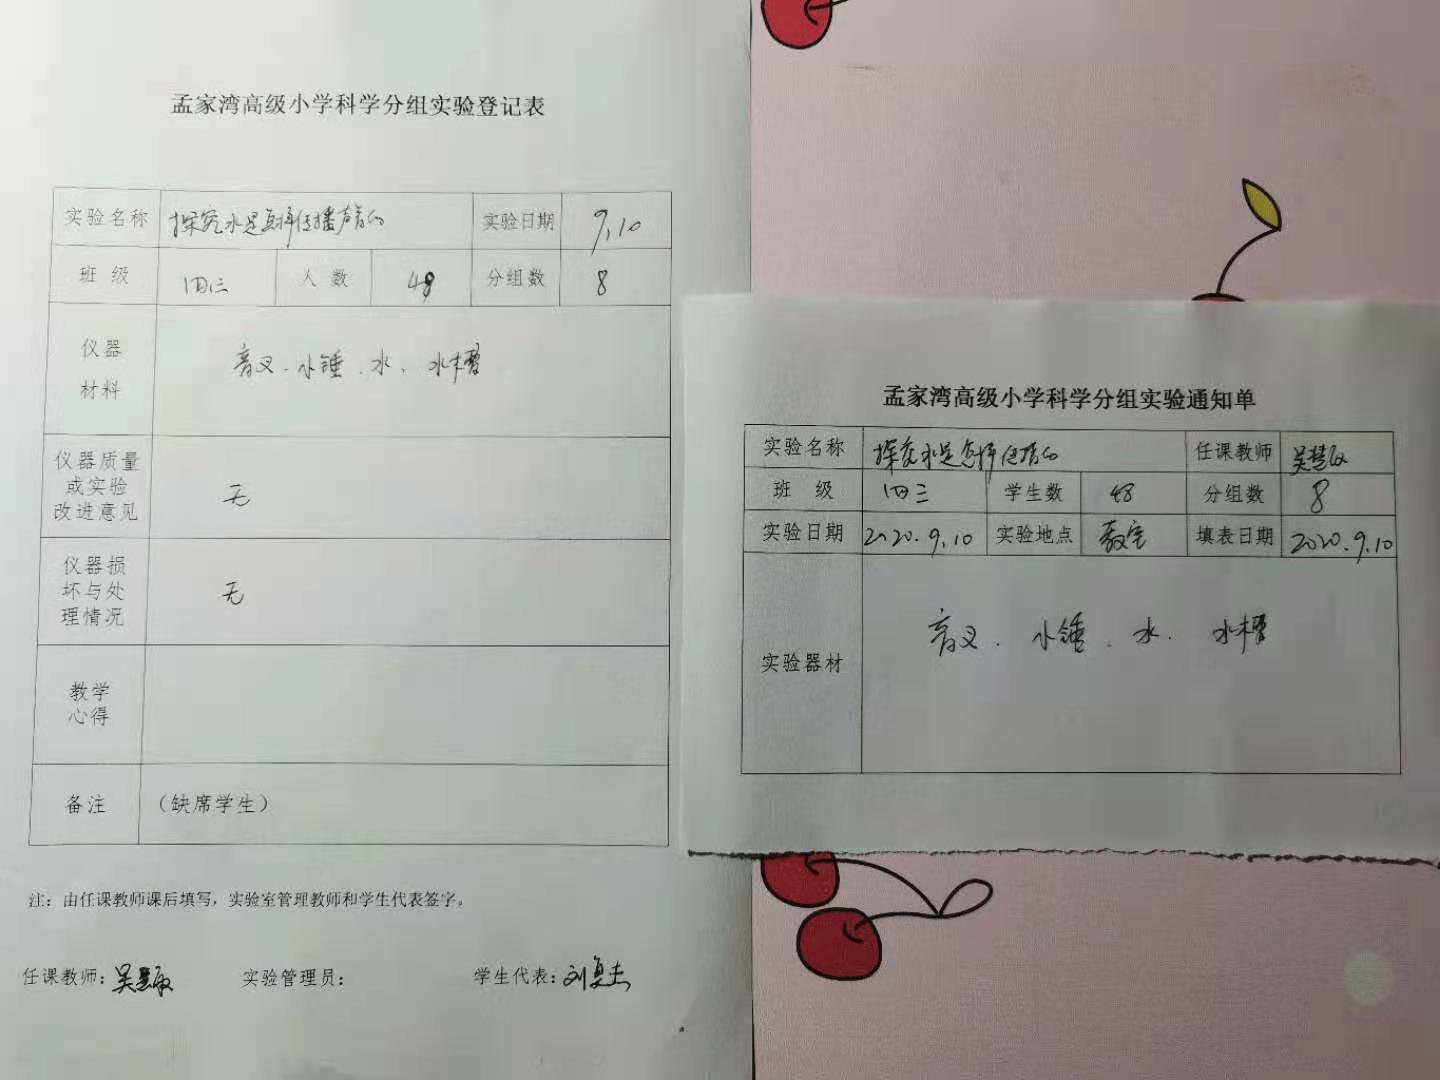 孟家湾高级小学科学分组实验登记表
实验名称 探究水是怎样传播声音的 实验日期 9.10
班 级 四三 人 数 48 分组数 8
仪器
材料
音叉、小锤、水、水槽
仪器质量
或实验
改进意见
无
仪器损
坏与处
理情况
无
教学
心得
备注 (缺席学生)
注：由任课教师课后填写，实验室管理教师和学生代表签字。
任课教师：吴慧敏 实验管理员： 学生代表：刘
孟家湾高级小学科学分组实验通知单
实验名称 探究水是怎样传声的 任课教师 吴慧敏
班 级 四三 学生数 48 分组数 8
实验日期 2020.9.10 实验地点 教室 填表日期 2020.9.10
实验器材 音叉、小锤、水、水槽